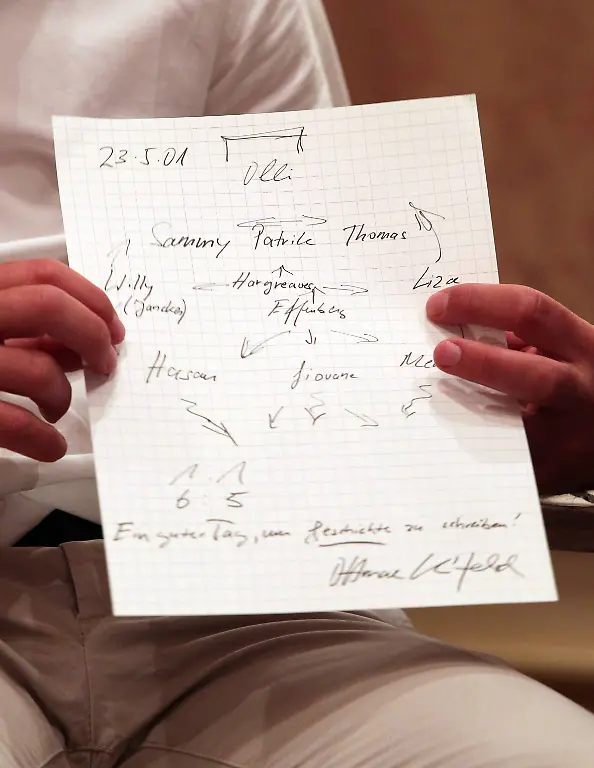 23.5.01
Olli
Sammy Patrik Thomas
Willy Hargreaves Liza
(Jancker) Effenberg
Hasan Giovane Me
1 : 1
6 : 5
Ein guter Tag, um Geschichte zu schreiben!
Ottmar Hitzfeld